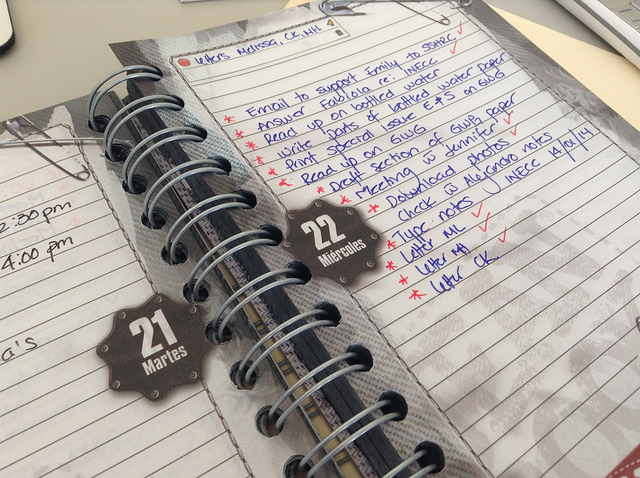 2:30pm
4:00 pm
a's
21
Martes
letters Melissa, CK, MH
* Email to support Emily to SSHRC
* Answer Fabiola re: INECC
* Read up on bottled water
* Write parts of bottled water paper
* Print special issue E+S on GWG
* Read up on GWG
* Draft section of GWG paper
* Meeting w Jennifer
* Download photos
Check w Alejandro notes
* Type notes INECC 14/01/14
* letter ML
* letter MH
* letter CK
22
Miércoles